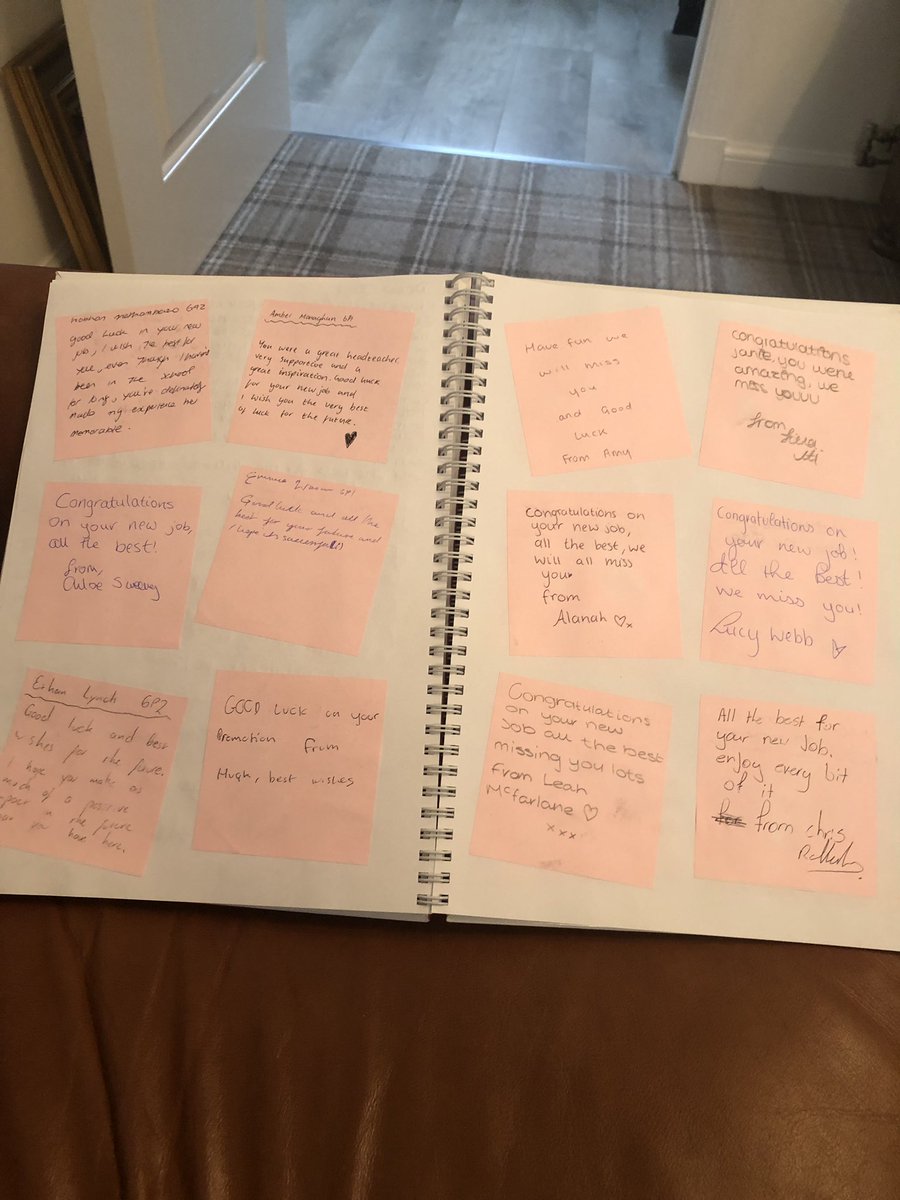 6P2
good luck in your new
job, I wish the best for
you, even though I haven't
been in the school
for long, you're definately
made my experience her
memorable.
Amber Monaghan 6P1
You were a great headteacher
very supportive and a
great inspiration. Good luck
for your new job and
I wish you the very best
of luck for the future.
Congratulations
on your new job,
all the best!
from,
Chloe Sweeney
Emma
Good luck and all the
best for your future and
I hope its successful :)
Ethan Lynch 6P2
Good luck and best
wishes for the future.
I hope you make as
much of a positive
in the future
you have here.
GOOD Luck on your
Promotion from
Hugh, best wishes
Have fun we
will miss
you
and Good
Luck
From Amy
Congratulations
janie, you were
amazing, we
miss youuu
from
Congratulations on
your new job,
all the best, we
will all miss
you
from
Alanah ♡x
Congratulations on
your new job!
All the Best!
we miss you!
Lucy Webb
Congratulations
on your new
Job all the best
missing you lots
From Leah
Mcfarlane ♡
xxx
All the best for
your new job.
enjoy every bit
of it
from chris